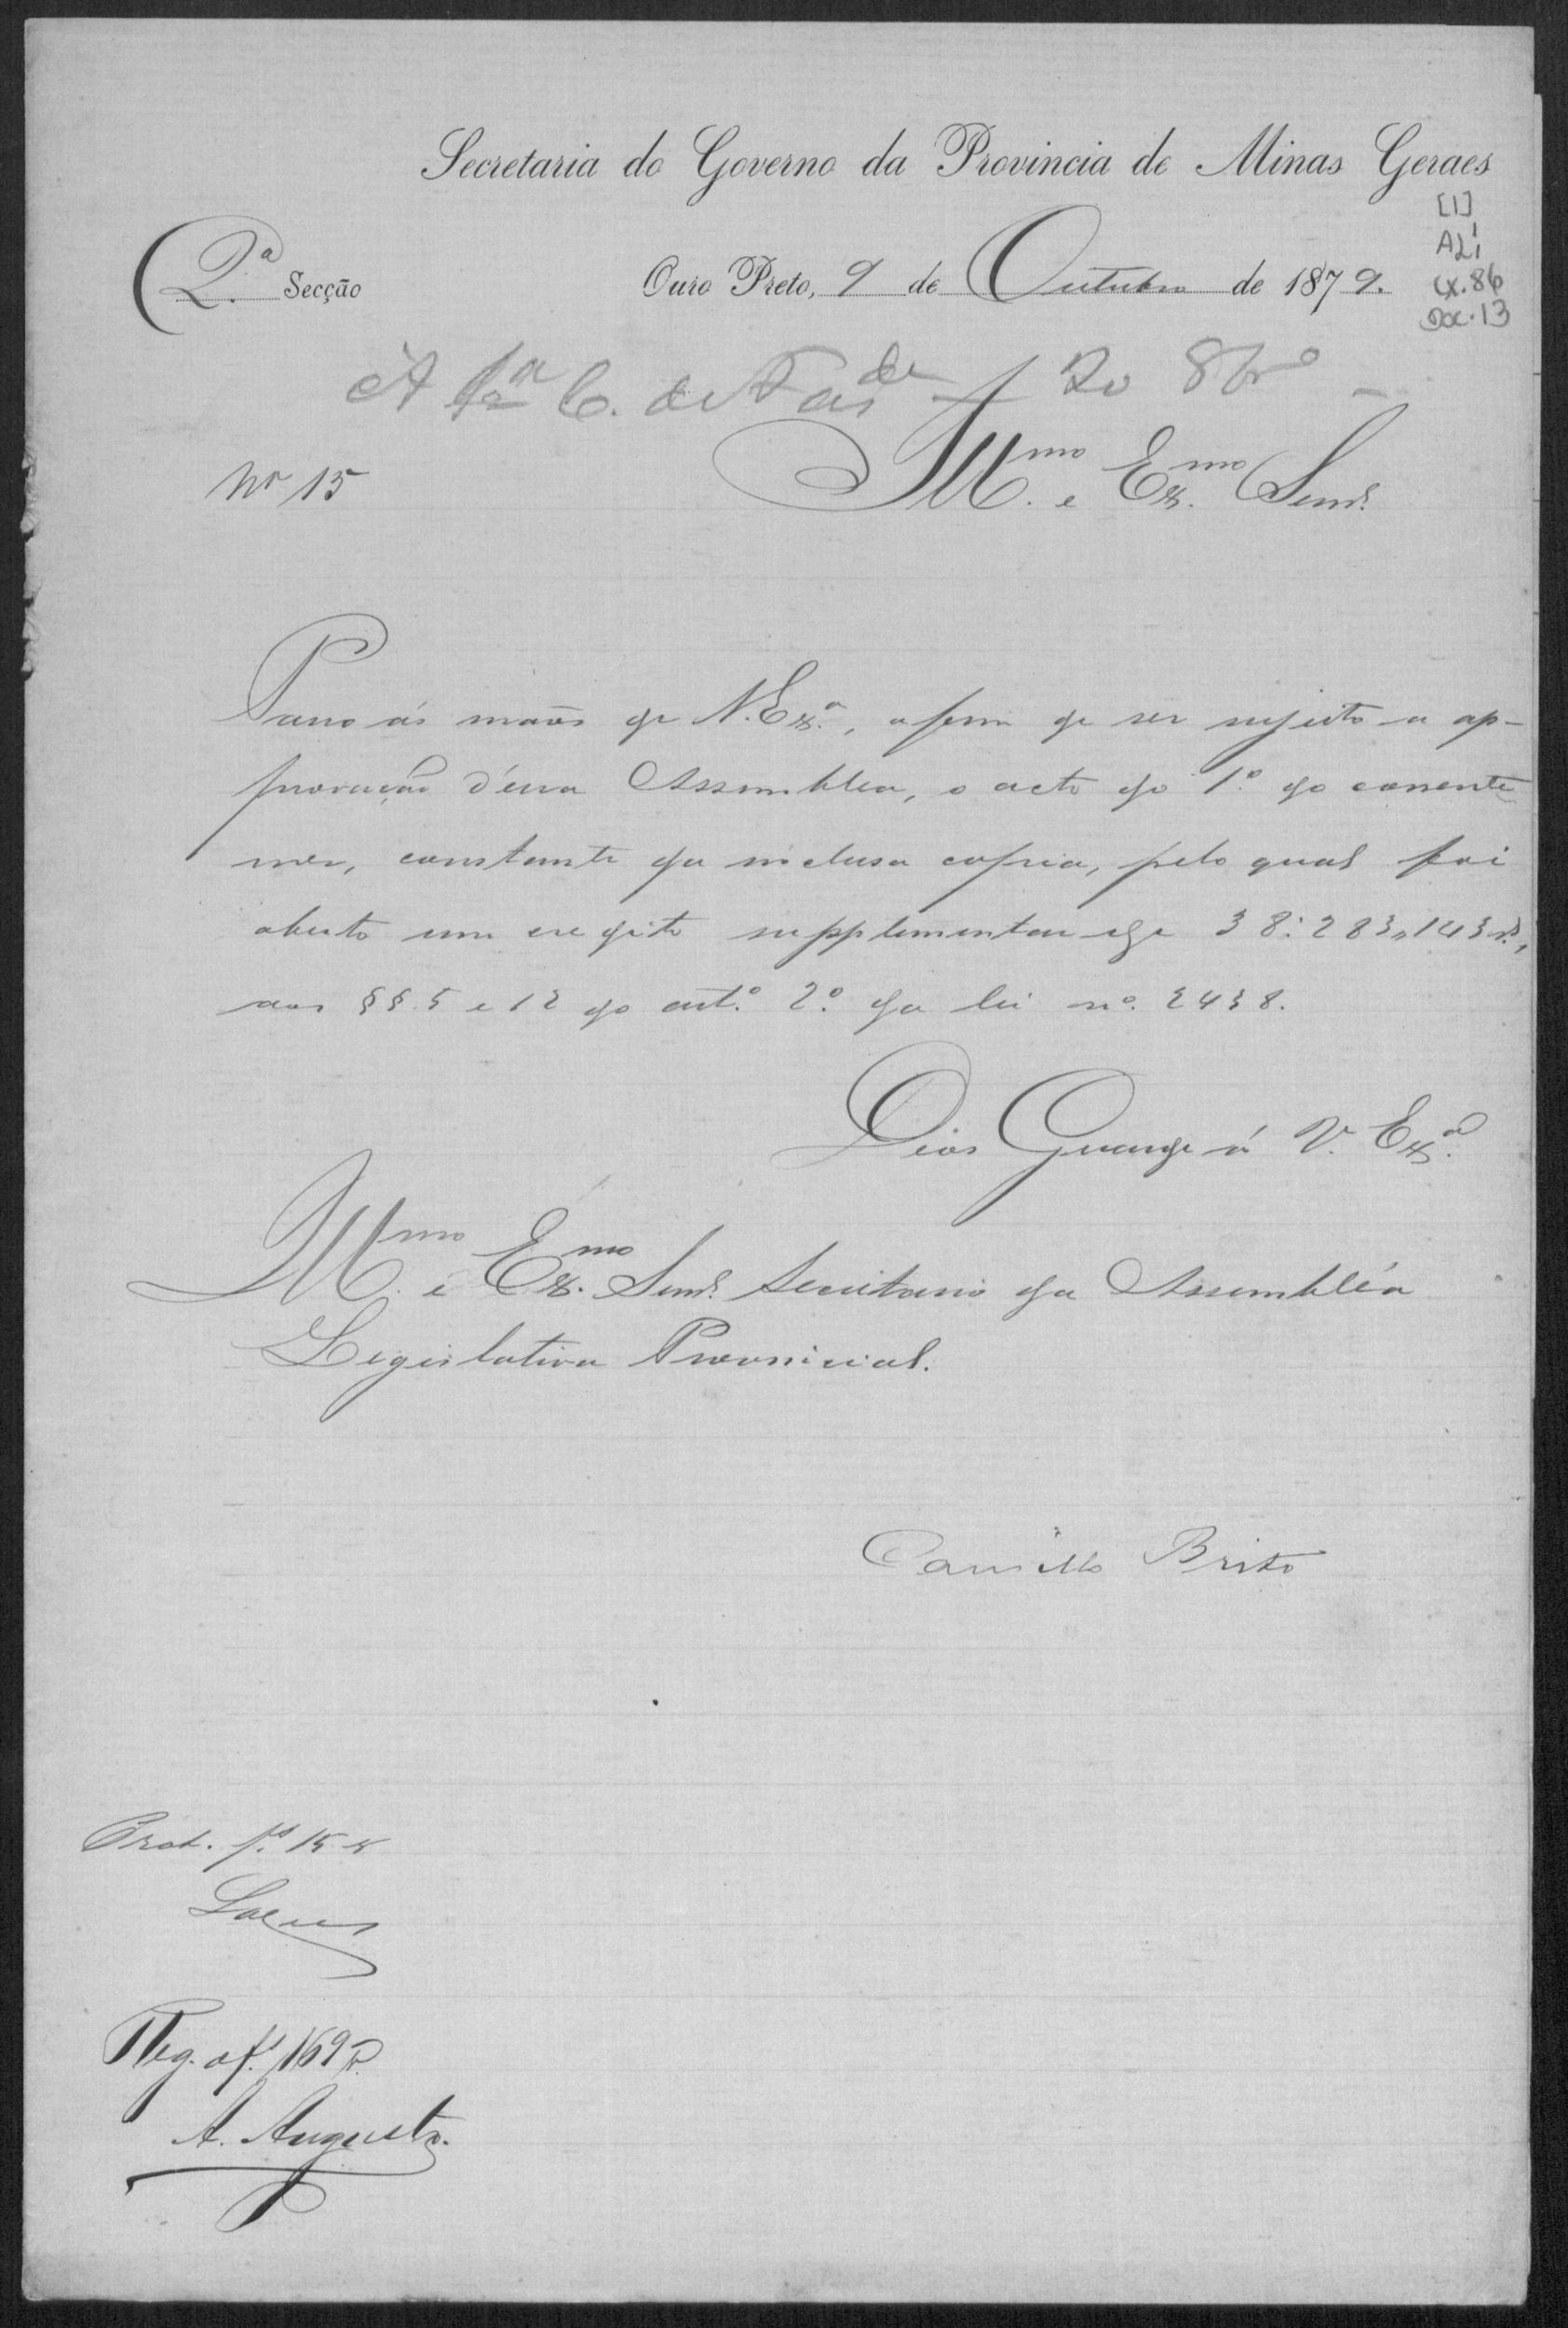 Secretaria do Governo da Provincia de Minas Geraes
[1]
ALi
cx.86
Doc.13
2.ª Secção
Ouro Preto, 9 de Outubro de 1879.
Á 1ª C. de Fasde 20 8bro
Nº 15
Illmo. e Exmo. Senr.
Passo ás mãos de V. Exª., afim de ser sujeito a ap-
provação d'essa Assemblea, o acto do 1º. do corrente
mez, constante da inclusa copia, pelo qual foi
aberto um credito supplementar de 38:283,143 rs.,
aos §§. 5 e 12 do art.º 2.º da lei nº. 2438.
Deos Guarde á V. Exª.
Illmo. e Exmo. Senr. Secretario da Assembléa
Legislativa Provincial.
Camillo Brito
Prot. fs. 15
Reg. a fs. 169
A. Augusto.